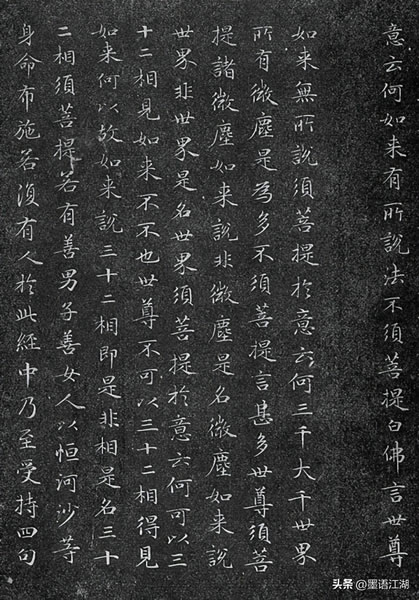 意云何如来有所說法不須菩提白佛言世尊
如来無所說須菩提於意云何三千大千世界
所有微塵是為多不須菩提言甚多世尊須菩
提諸微塵如来說非微塵是名微塵如来說
世界非世界是名世界須菩提於意云何可以三
十二相見如来不不也世尊不可以三十二相得見
如来何以故如来說三十二相即是非相是名三十
二相須菩提若有善男子善女人以恒河沙等
身命布施若復有人於此經中乃至受持四句
头条 @墨语江湖